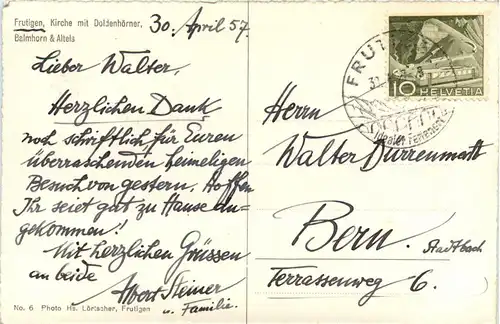 Frutigen, Kirche mit Doldenhörner,
Balmhorn & Altels
30. April 57.
Lieber Walter,
Herzlichen Dank
noch schriftlich für Euren
überraschenden heimeligen
Besuch von gestern. Hoffen
Ihr seiet gut zu Hause an-
gekommen!
Mit herzlichen Grüssen
an beide
Albert Steiner
u. Familie.
No. 6 Photo Hs. Lörtscher, Frutigen
FRUTIGEN
10 HELVETIA
Herrn
Walter Dürrenmatt
Bern.
Stadtbach
Terrassenweg 6.